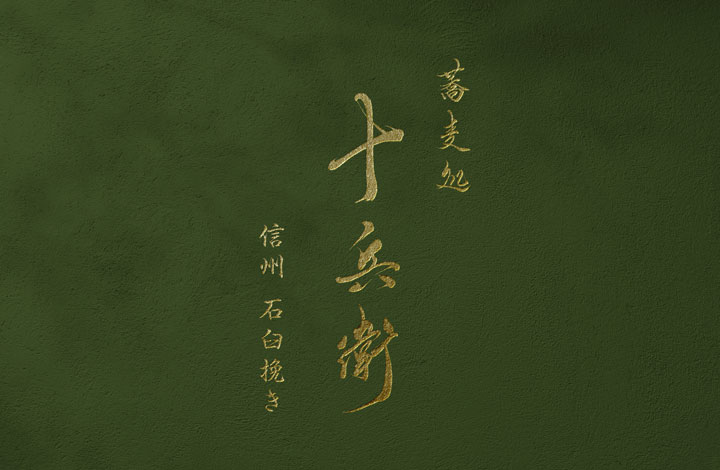 蕎麦処
十兵衛
信州 石臼挽き